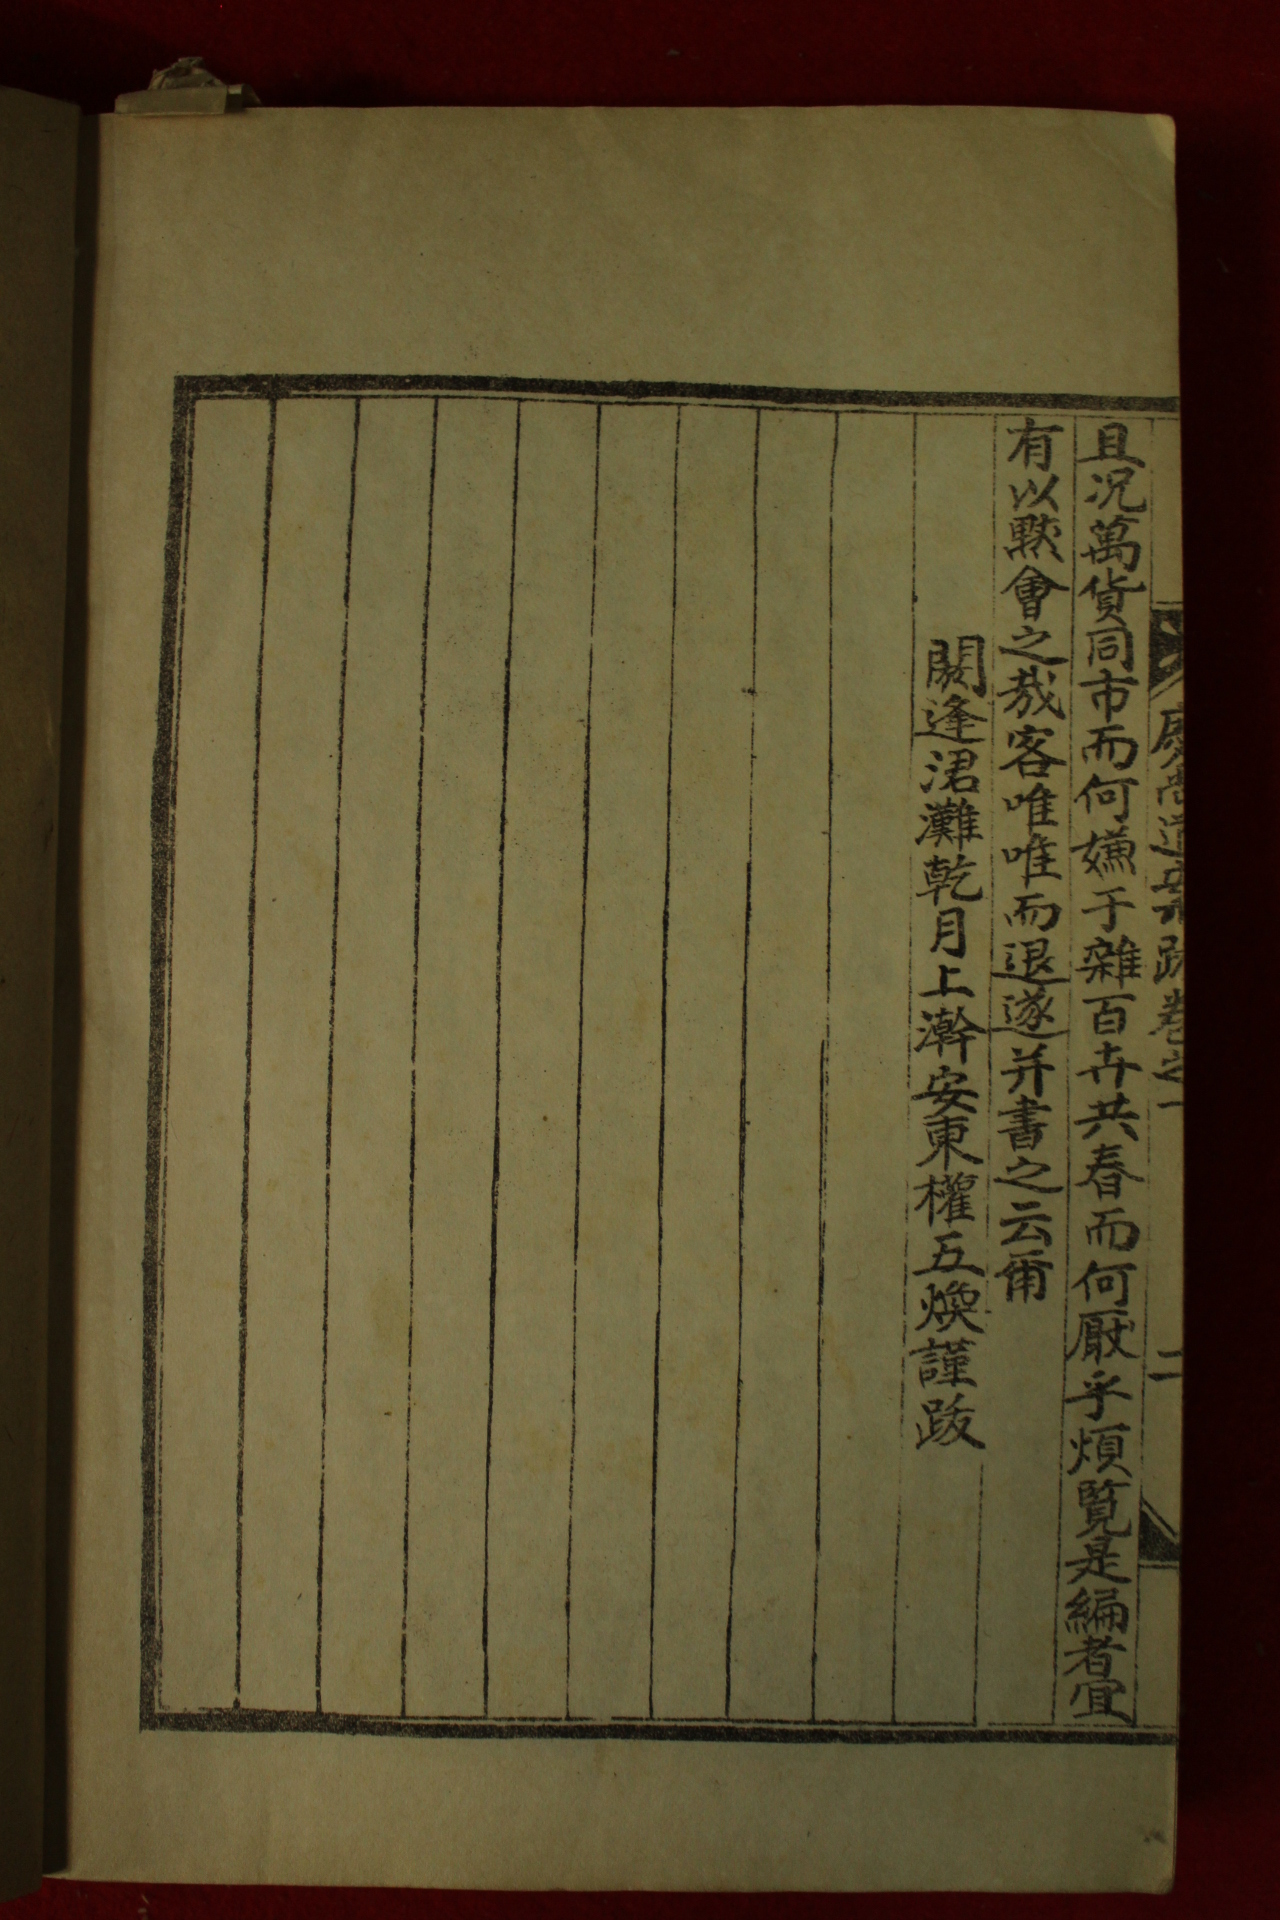 慶尚道案跋卷之一 二
且况萬貨同市而何嫌于雜百卉共春而何厭乎煩覽是編者宜
有以默會之哉客唯唯而退遂并書之云爾
閼逢涒灘乾月上澣安東權五煥謹跋